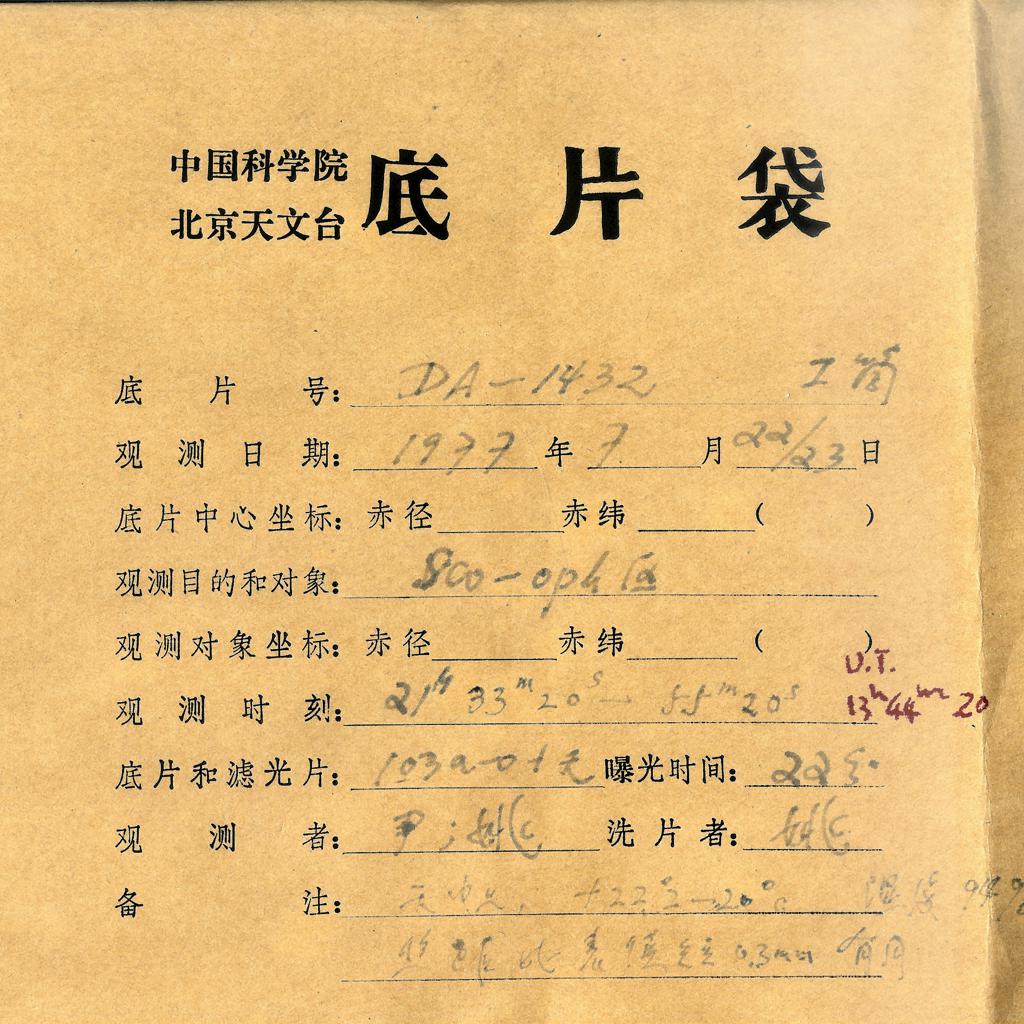 中国科学院
北京天文台 底片袋
底片号: DA-1432
观测日期: 1977年7月22/23日
底片中心坐标: 赤径 赤纬 ( )
观测目的和对象: Sco-oph区
观测对象坐标: 赤径 赤纬 ( )
U.T.
观测时刻: 21h 33m 20s — 55m 20s 13h 44m 20
底片和滤光片: 103a-O+无 曝光时间: 22分
观测者: 尹; 姚 洗片者: 姚
备注: +22° 20° 温度 94%
0.3mm 有月